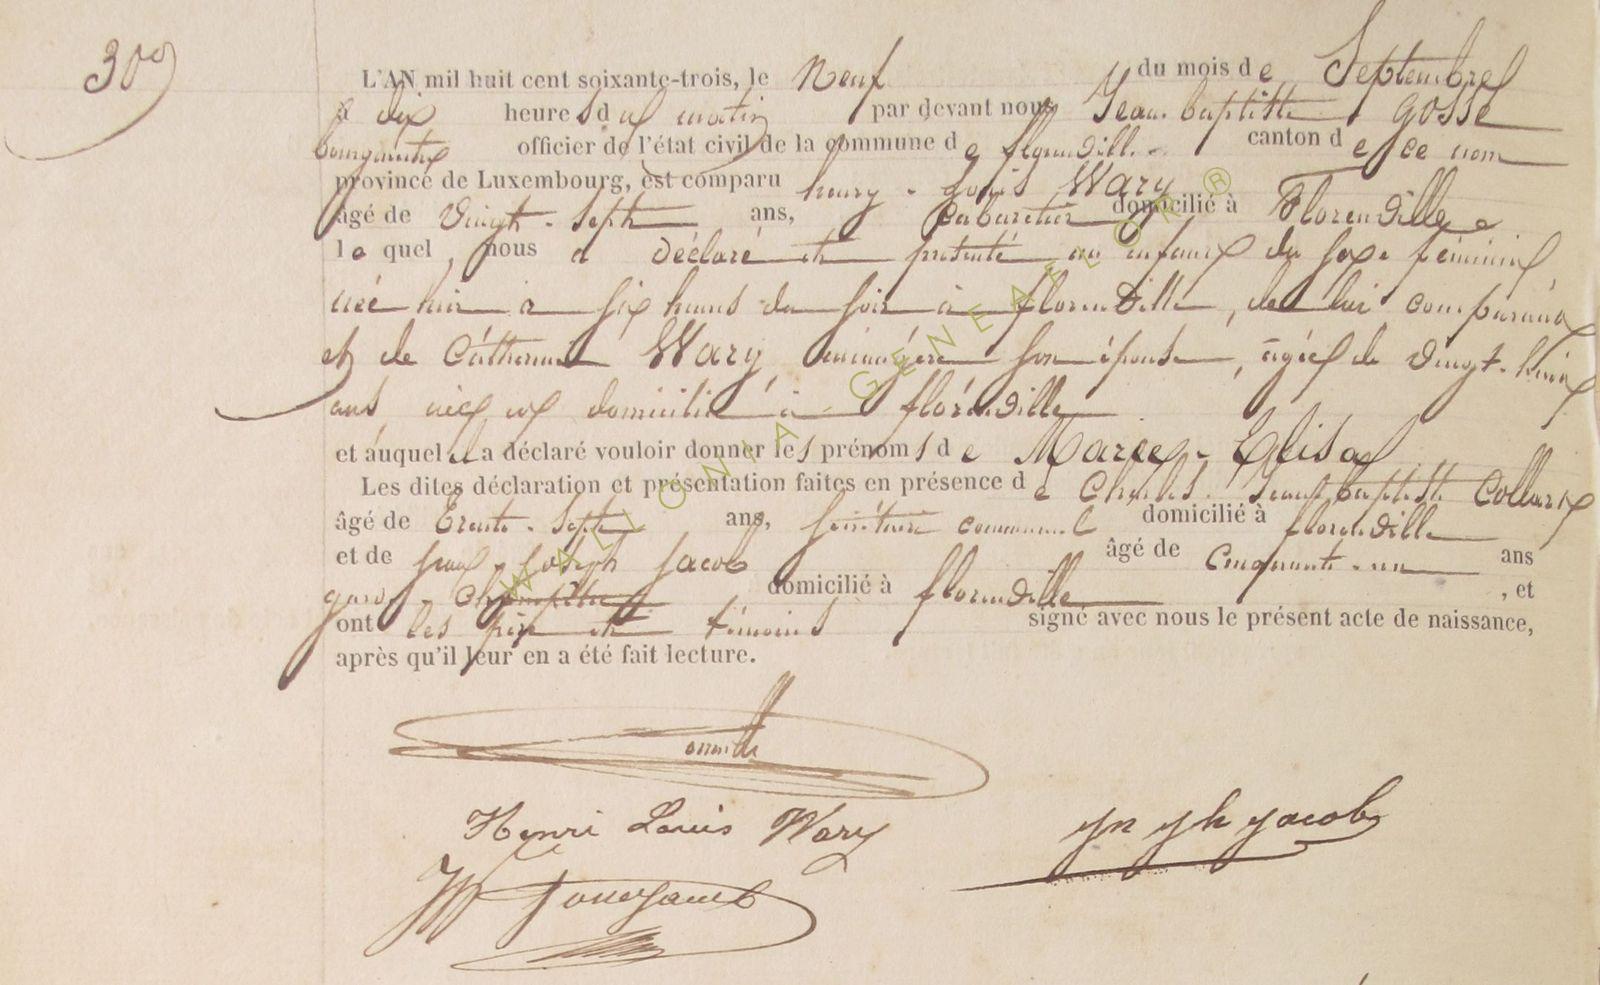 30
L'AN mil huit cent soixante-trois, le Neuf du mois de Septembre
à dix heures du matin par devant nous Jean baptiste Gosse
bourgmestre officier de l'état civil de la commune de florenville canton de ce nom
province de Luxembourg, est comparu henry - Louis Wary
âgé de Vingt-Sept ans, Cabaretier domicilié à Florenville
le quel, nous a déclaré et présenté un enfant du sexe féminin
née hier à six heures du soir à florenville, de lui comparant
et de Cathérine Wary ménagère son épouse, agée de Vingt-huit
ans née et domiciliée à florenville
et auquel il a déclaré vouloir donner les prénoms de Marie - Elisa
Les dites déclaration et présentation faites en présence de Charles Jean baptiste Collard
âgé de Trente-Sept ans, secrétaire communal domicilié à florenville
et de Jean Joseph Jacob âgé de Cinquante-un ans
garde Champêtre domicilié à florenville , et
ont les père et témoins signé avec nous le présent acte de naissance,
après qu'il leur en a été fait lecture.
Henri Louis Wary
jn jh jacob
WALLONIA GENEALOR ®